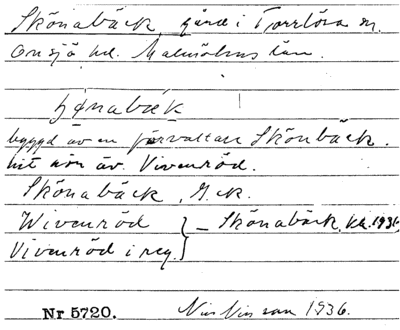 Skönabäck, gård i Torrlösa sn.
Onsjö hd. Malmöhus län.
byggd av en förvaltare Skönbäck.
hit hör äv. Vivenröd.
Skönabäck, G.k.
Wivenröd } – Skönabäck, kk. 1936,
Vivenröd i reg.
Nr 5720. Nils Nilsson 1936.